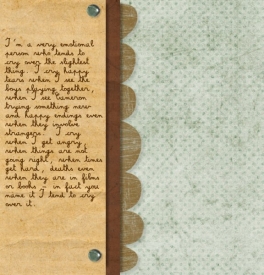 I'm a very emotional
person who tends to
cry over the slightest
thing. I cry happy
tears when I see the
boys playing together,
when I see Cameron
trying something new
and happy endings even
when they involve
strangers. I cry
when I get angry,
when things are not
going right, when times
get hard, deaths even
when they are in films
or books - in fact you
name it I tend to cry
over it.